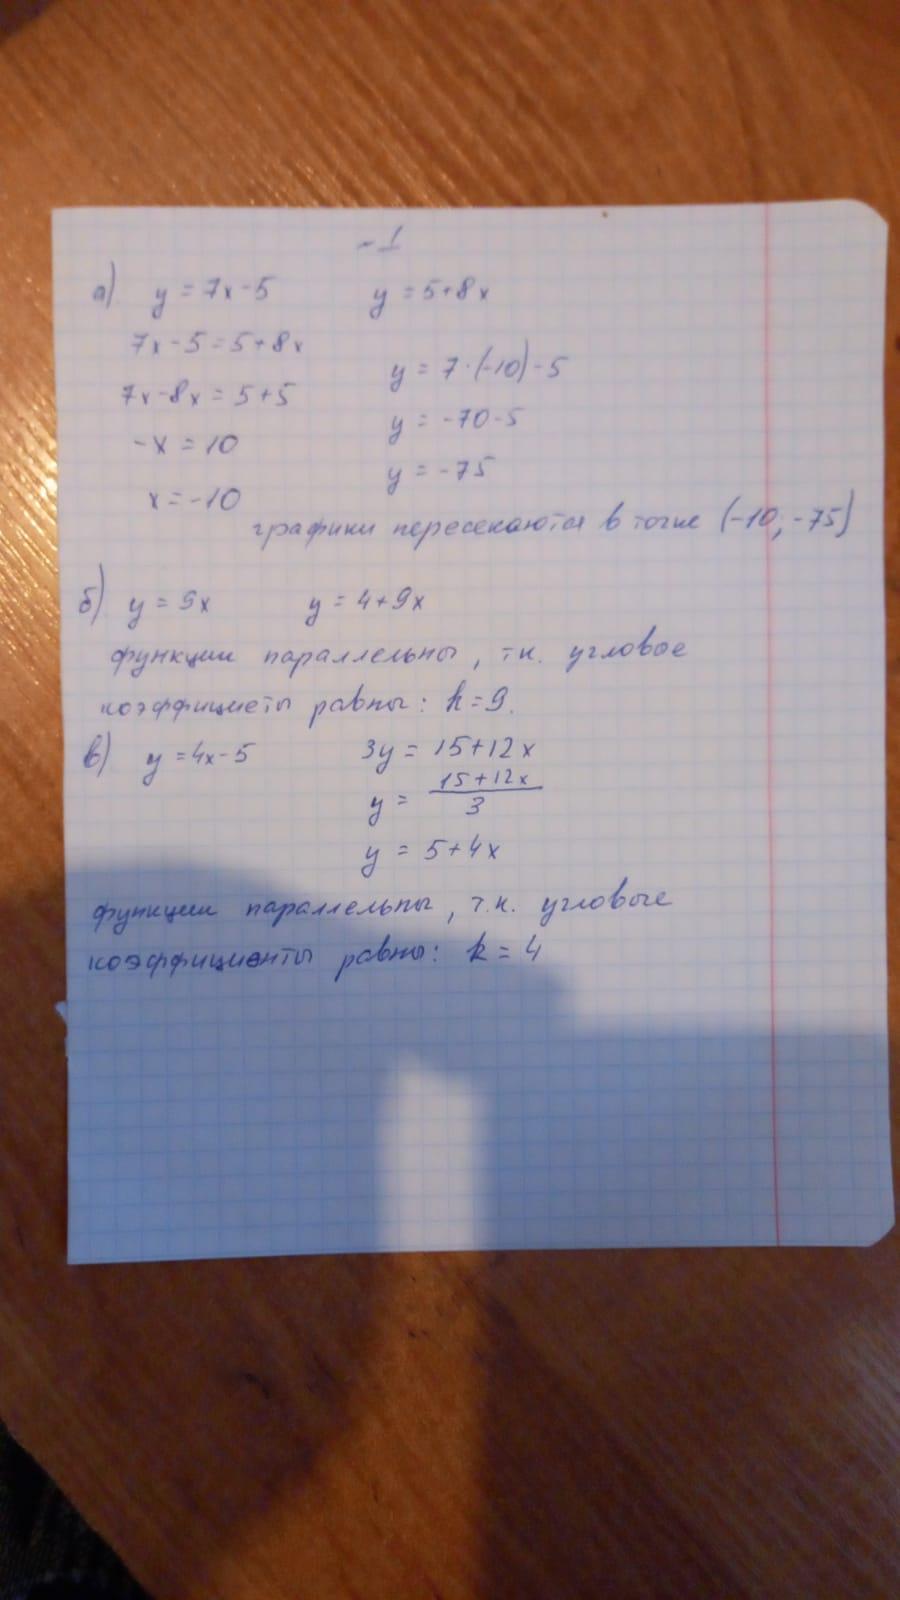 ~1
а) y = 7x - 5 y = 5 + 8x
7x - 5 = 5 + 8x
y = 7 · (-10) - 5
7x - 8x = 5 + 5
y = -70 - 5
-x = 10
y = -75
x = -10
графики пересекаются в точке (-10; -75)
б) y = 9x y = 4 + 9x
функции параллельны, т.к. угловое
коэффициеты равны: k = 9.
в) y = 4x - 5 3y = 15 + 12x
y = \frac{15 + 12x}{3}
y = 5 + 4x
функции параллельны, т.к. угловые
коэффициенты равны: k = 4